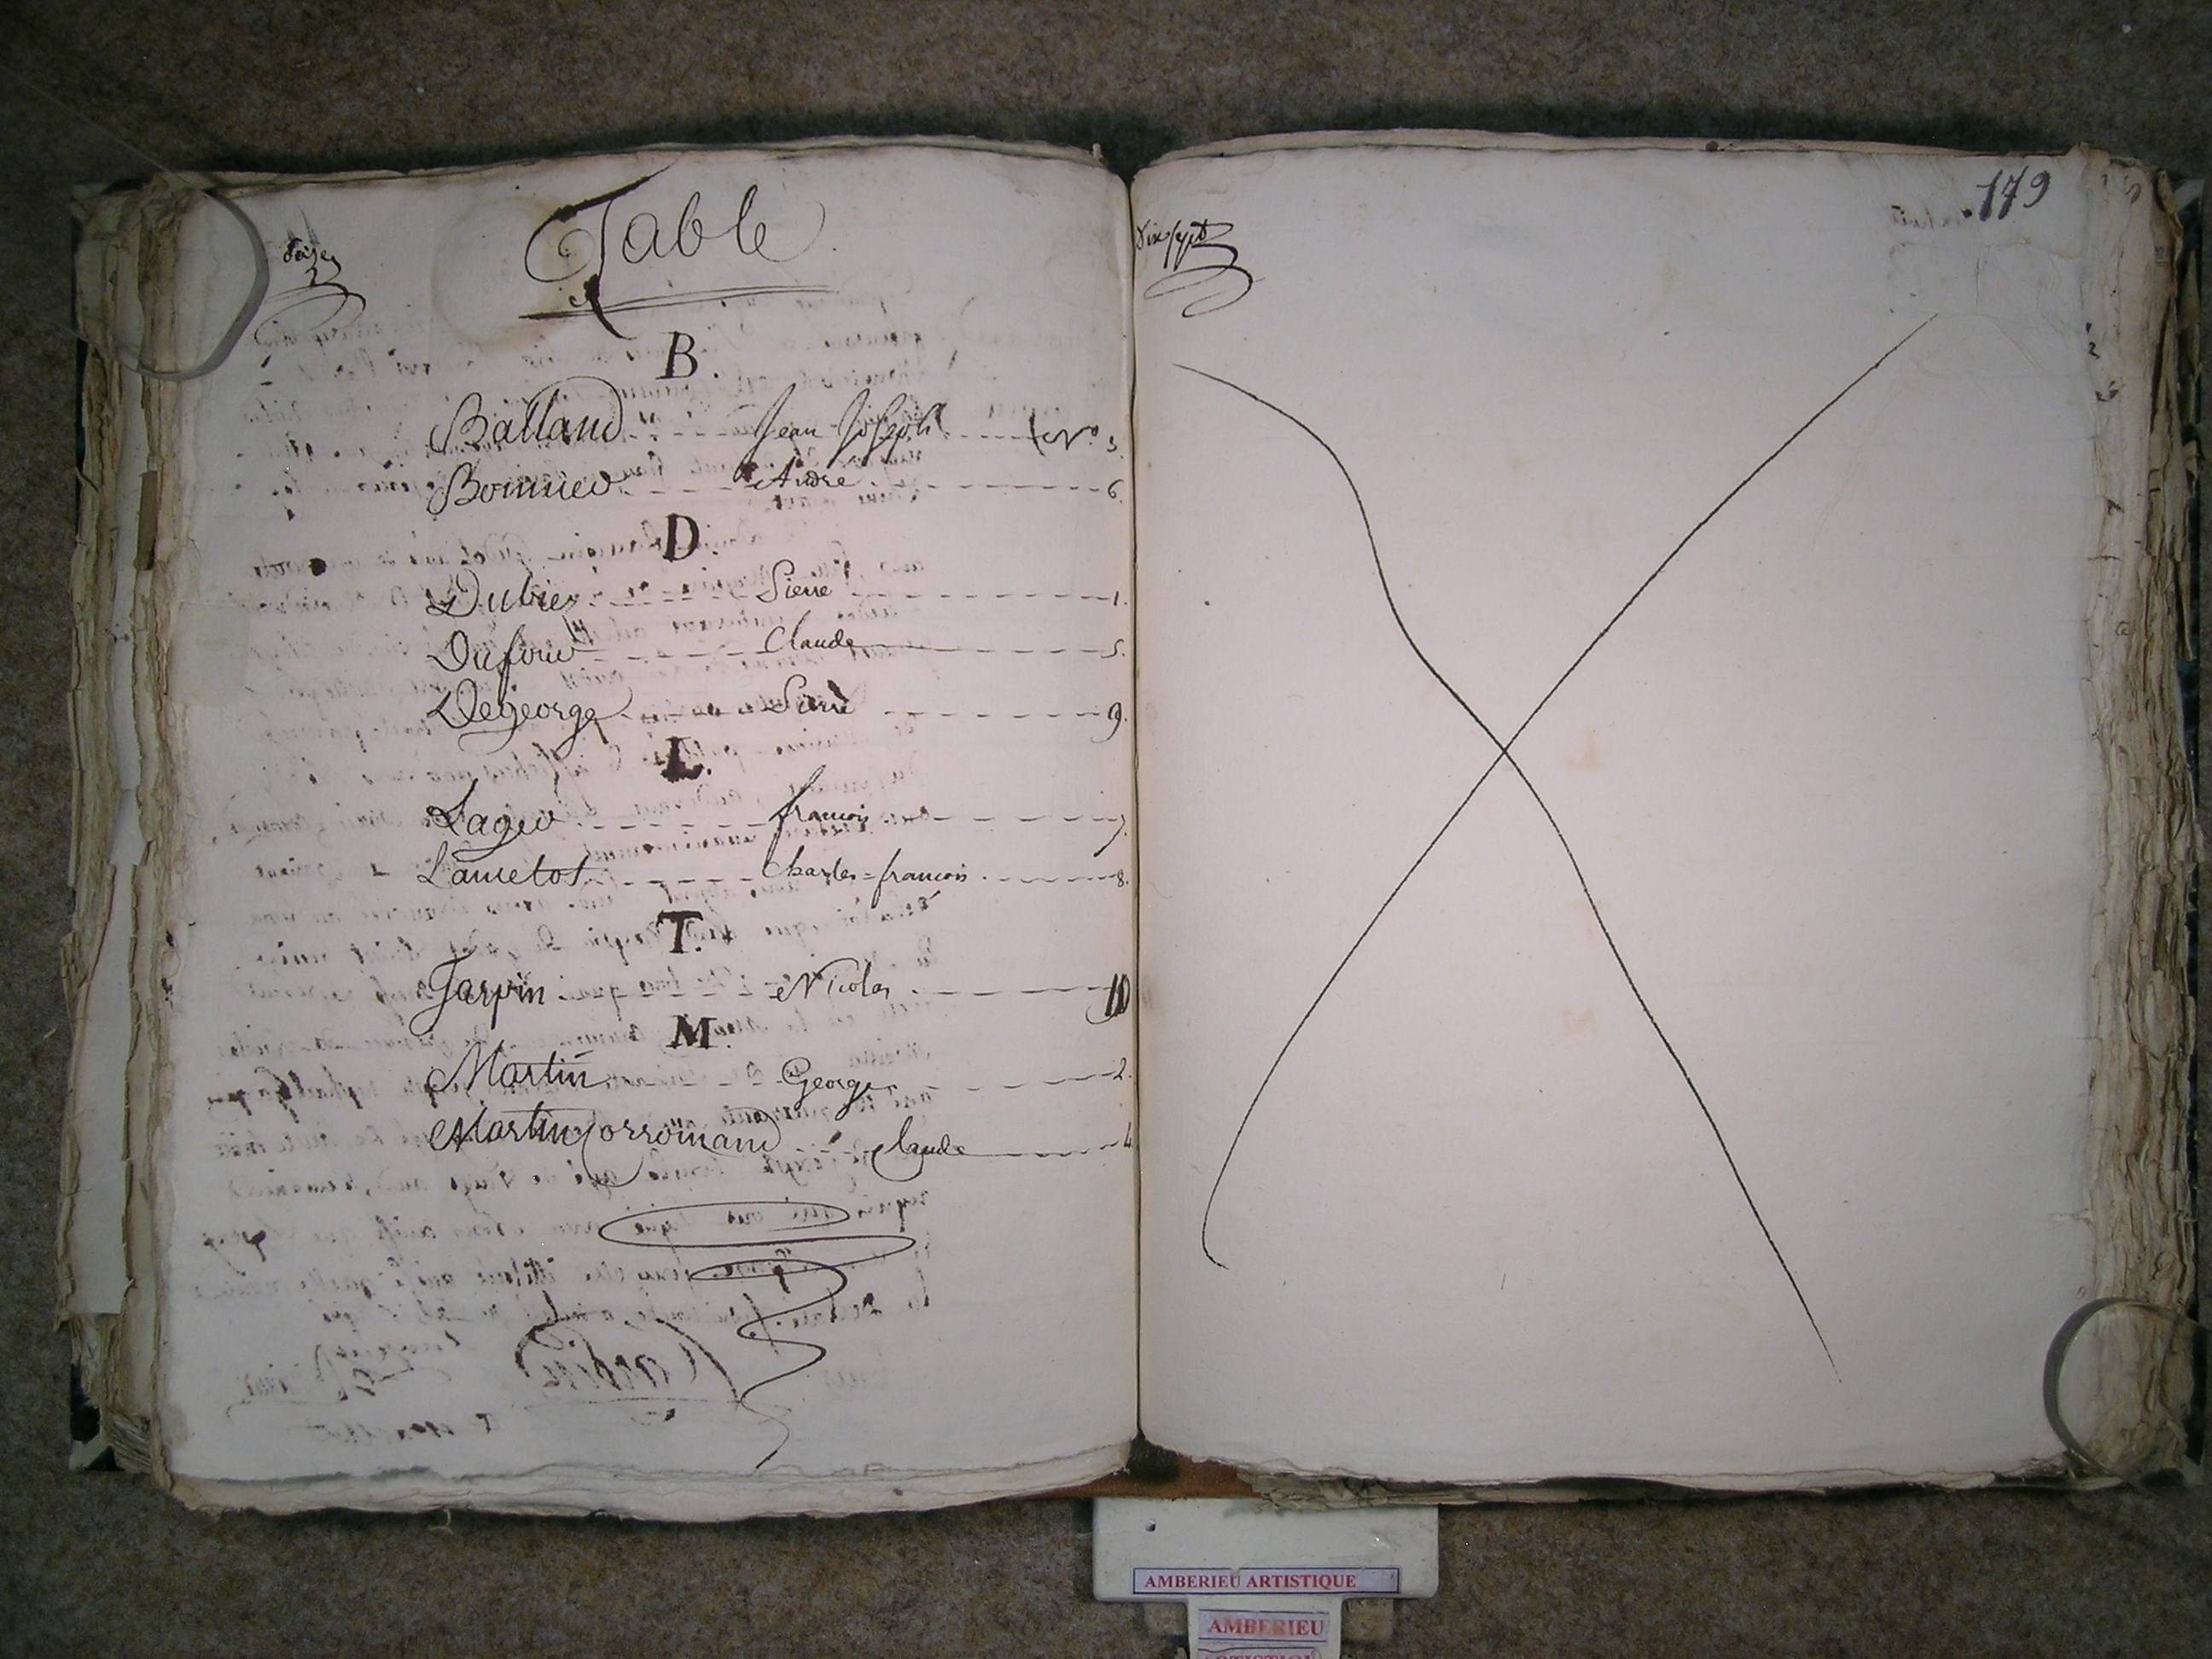 seize
Table
B.
Balland Jean Joseph N° 3.
Bonnier André 6.
D.
Dubiez Pierre 1.
Dufour Claude 5.
Degeorge Pierre 9.
L.
Lager francois 7.
Lancelot Charles = francois 8.
T.
Jarpin Nicolas 10
M.
Martin George 2.
Martin Corromand Claude 4
dix sept
179
AMBERIEU ARTISTIQUE
AMBERIEU
ARTISTIQUE